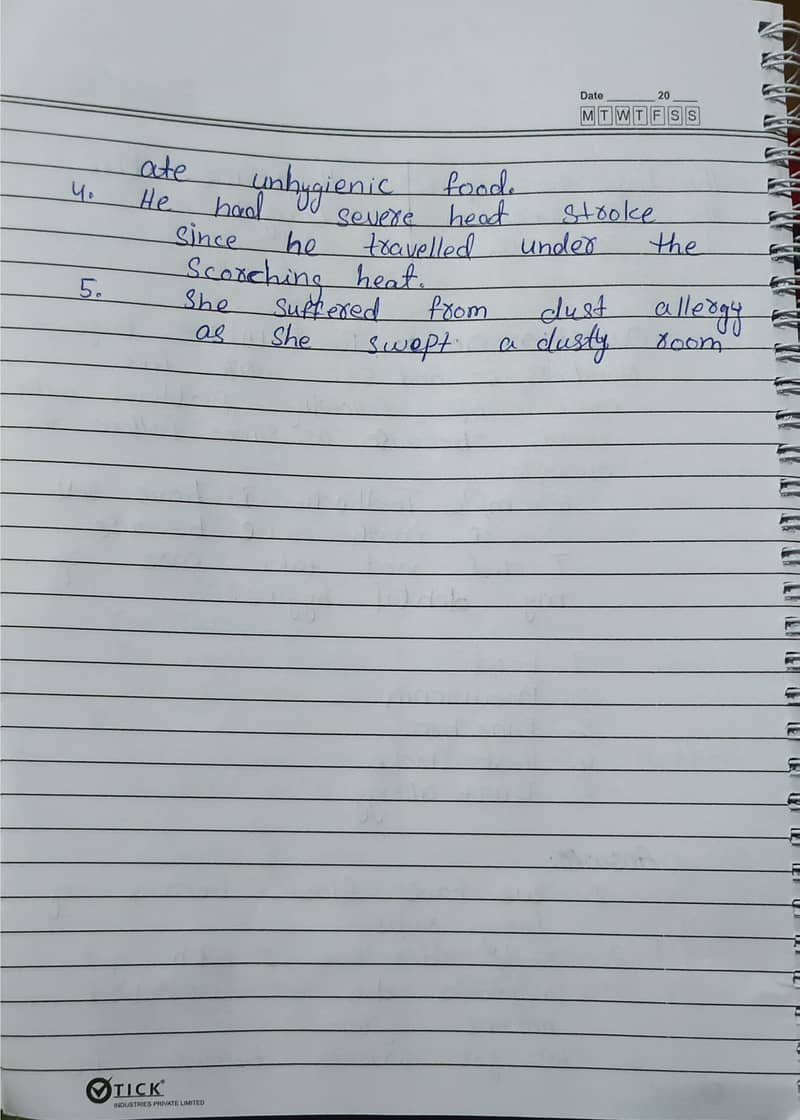 Date 20
M T W T F S S
ate unhygienic food.
4. He had severe heat stroke
since he travelled under the
Scorching heat.
5. She suffered from dust allergy
as she swept a dusty room
TICK
INDUSTRIES PRIVATE LIMITED